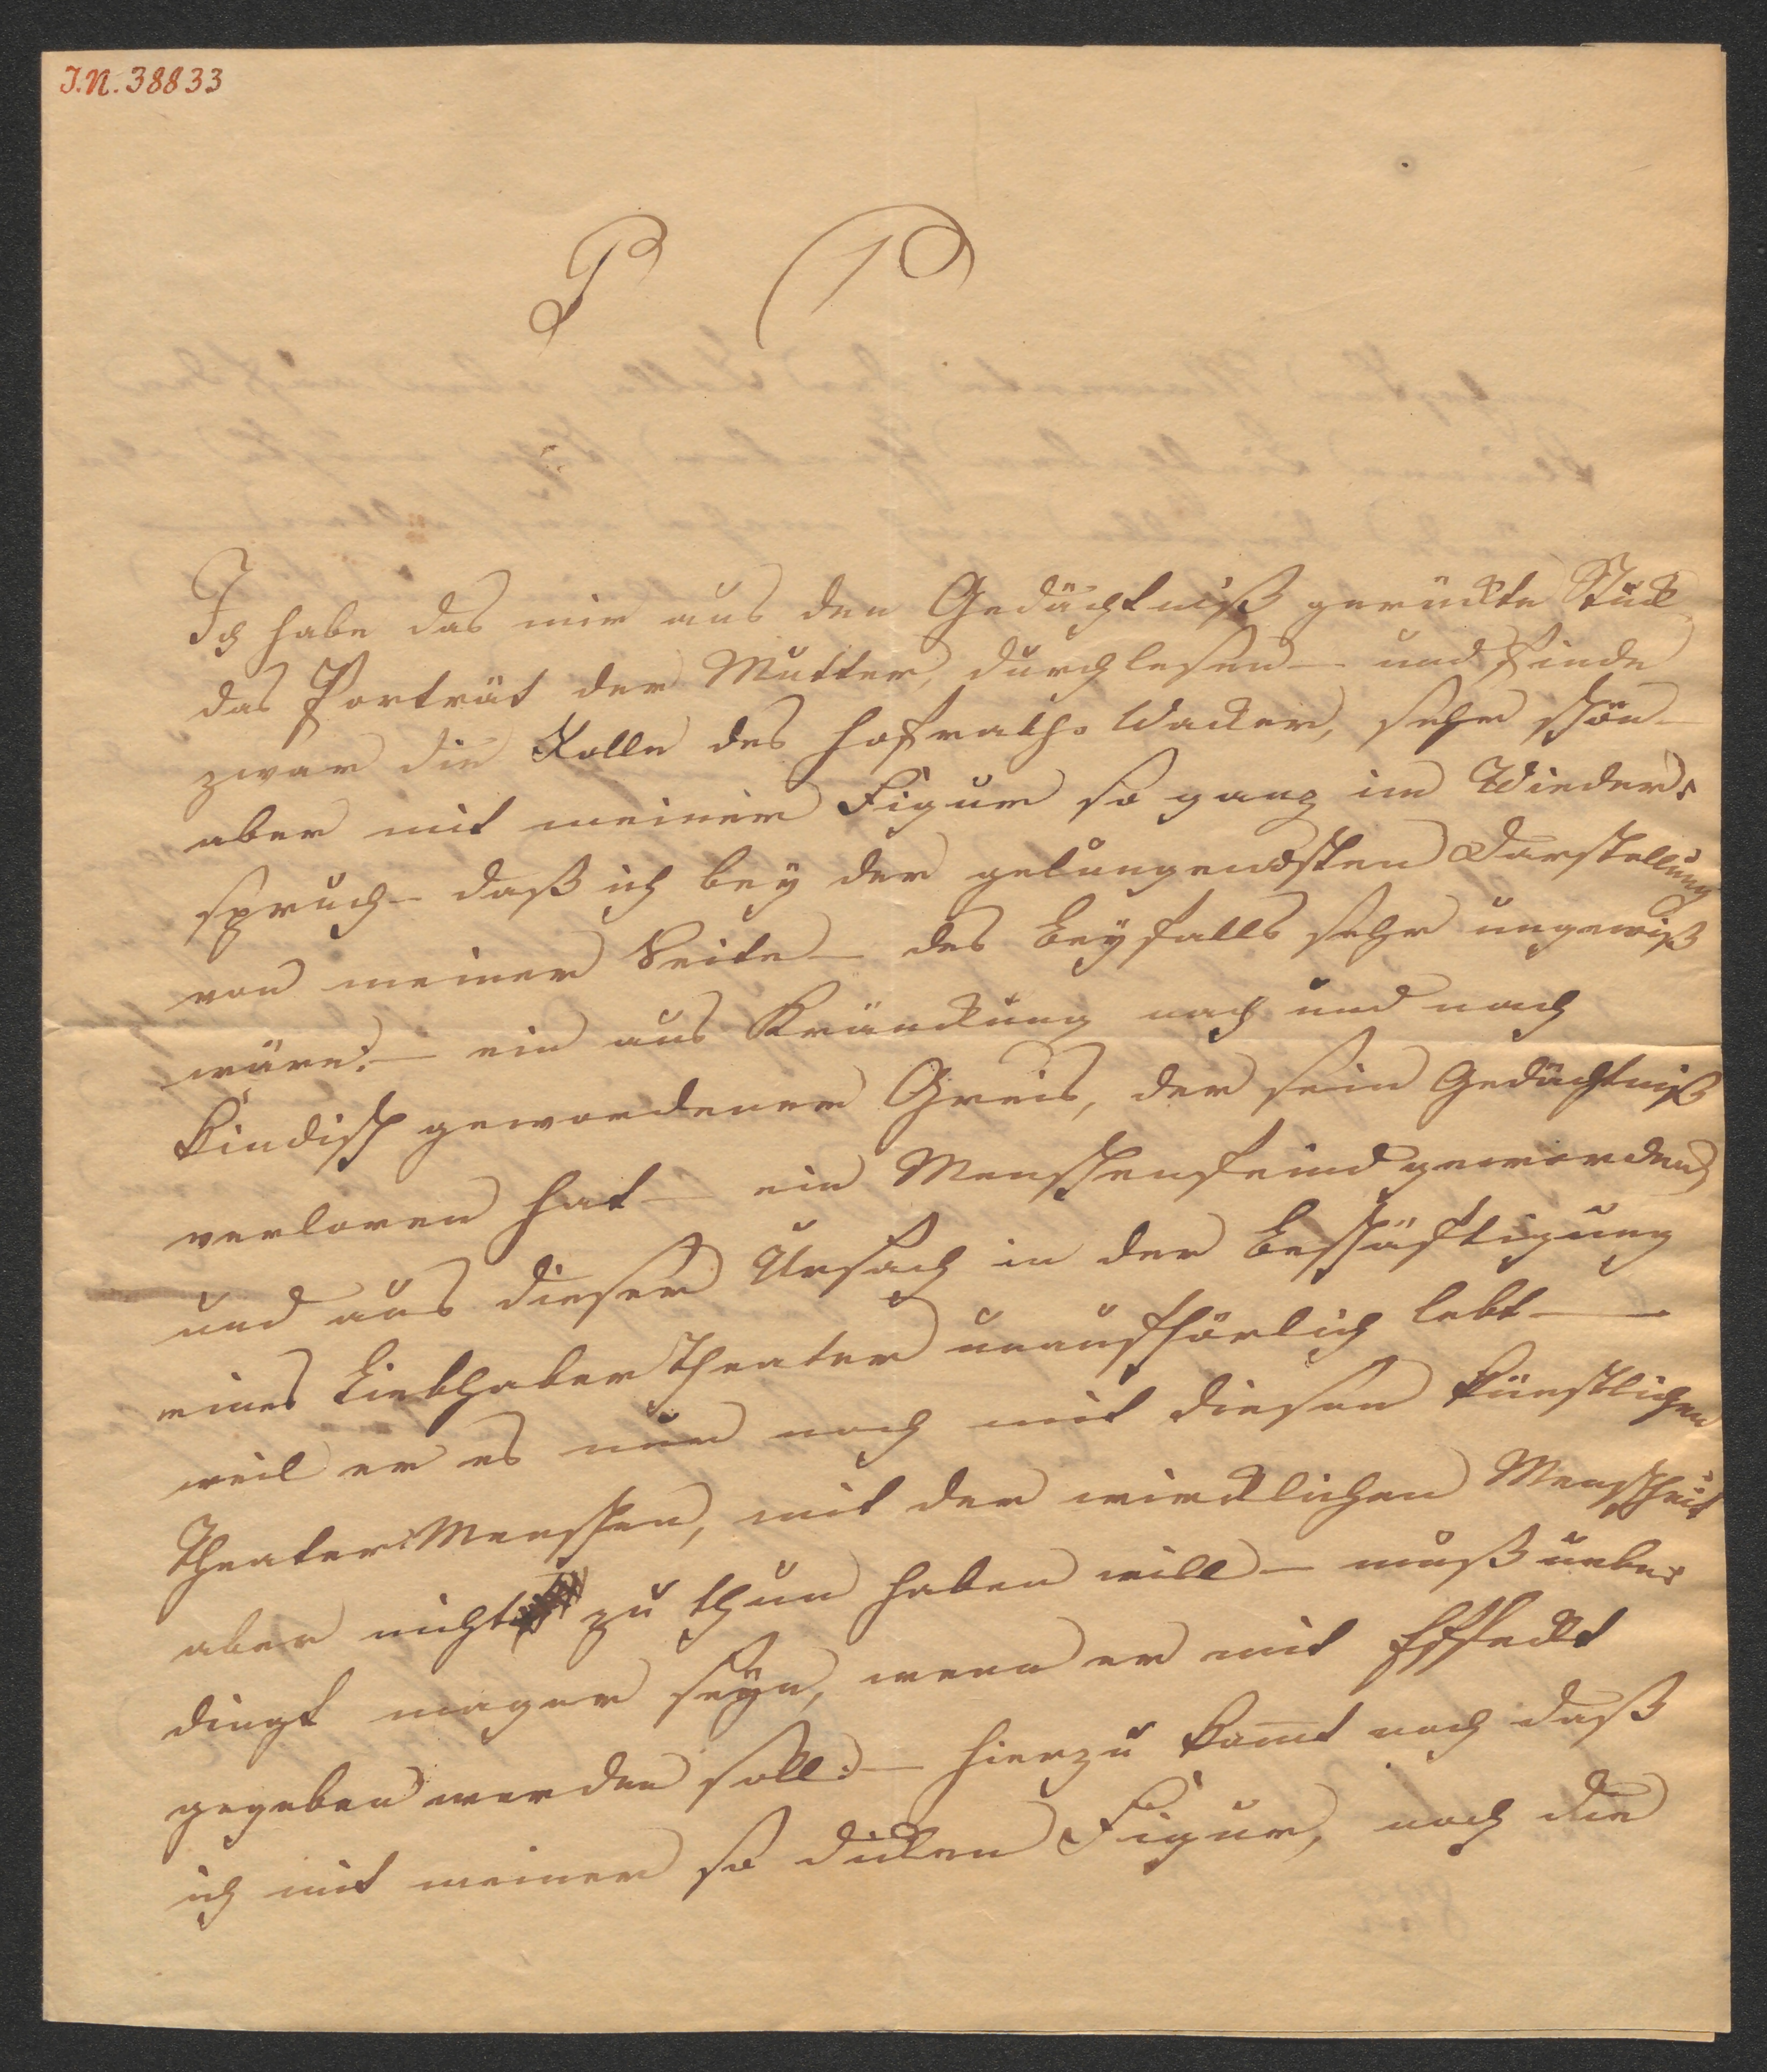 J.N. 38833
P P
Ich habe das mir aus den Gedächtniß gerückte Stück
das Porträt der Mutter, durchlesen – und finde
zwar die Rolle des Hofrath. Wacker, sehr schön –
aber mit meiner Figur so ganz im Wieder:
spruch – daß ich bey der gelungendsten Darstellung
von meiner Seite – des Beyfalls sehr ungewiß
wäre: – ein aus Kränckung nach und nach
kindisch gewordener Greis, der sein Gedächtniß
verloren hat – ein Menschenfeind geworden,
und aus dieser Ursach in der Beschäftigung
eines Liebhaber Theater unaufhörlich lebt –
weil er es nur noch mit diesen künstlichen
Theater: Menschen, mit der wircklichen Menschheit
aber nichts zu thun haben will – muß unbe:
dingt mager seyn, wenn er mit Effeckt
gegeben werden soll: – hierzu kommt noch daß
ich mit meiner so dicken Figur, noch die